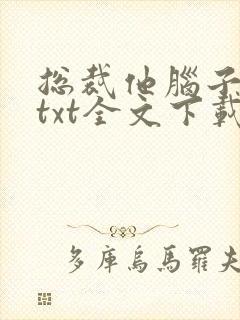 总裁他腦子
txt全文下載
多庫烏馬羅夫